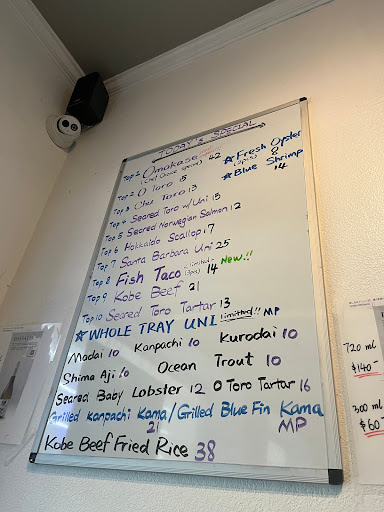 TODAY'S SPECIAL
Top 1 Omakase 42
(Chef Choice special)
☆ Fresh Oyster
(2pcs) 8
☆ Blue Shrimp
14
Top 2 O Toro 15
Top 3 Chu Toro 13
Top 4 Seared Toro w/Uni 18
Top 5 Seared Norwegian Salmon 12
Top 6 Hokkaido Scallop 17
Top 7 Santa Barbara Uni 25
Top 8 Fish Taco (Limited) (3pcs) 14 New!!
Top 9 Kobe Beef 21
Top 10 Seared Toro Tartar 13
☆ WHOLE TRAY UNI Limitted!! MP
Madai 10 Kanpachi 10 Kurodai 10
Shima Aji 10 Ocean Trout 10
Seared Baby Lobster 12 O Toro Tartar 16
Grilled Kanpachi Kama/Grilled Blue Fin Kama
21 MP
Kobe Beef Fried Rice 38
720 ml
$140-
300 ml
$60